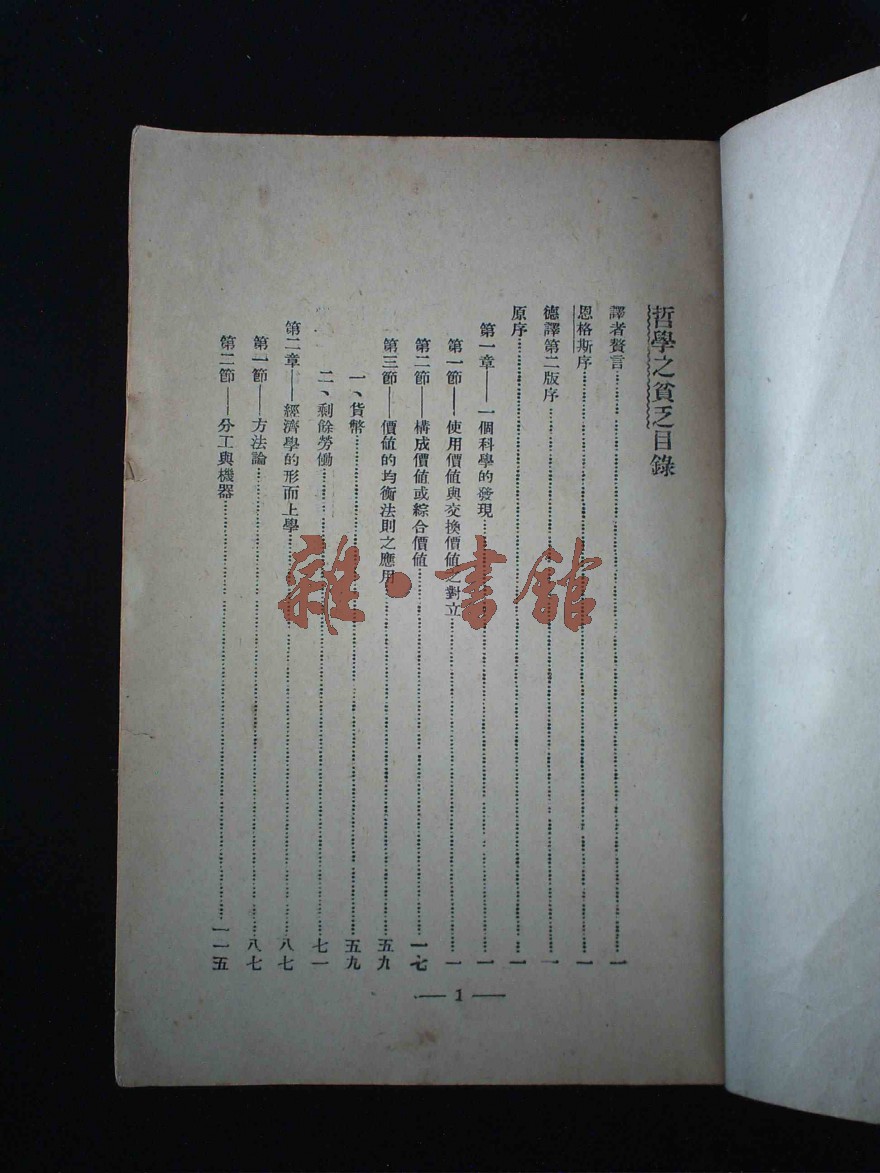 哲學之貧乏目錄
譯者贅言……一
恩格斯序……一
德譯第二版序……一
原序……一
第一章——一個科學的發現……一
第一節——使用價値與交換價値之對立……一
第二節——構成價値或綜合價値……一七
第三節——價値的均衡法則之應用……五九
一、貨幣……五九
二、剩餘勞働……七一
第二章——經濟學的形而上學……八七
第一節——方法論……八七
第二節——分工與機器……一一五
— 1 —
雜·書館